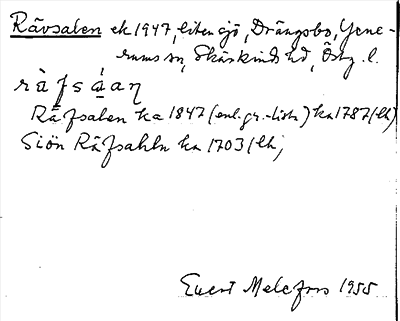 Rävsalen ek 1947, liten sjö, Drängsbo, Yxne-
rums sn, Skärkinds hd, Östg. l.
rä̀fså̱aŋ
Räfsalen ka 1847 (enl. gr.-lista) ka 1787 (ll)
Siön Räfsahln ka 1703 (ll),
Evert Melefors 1955